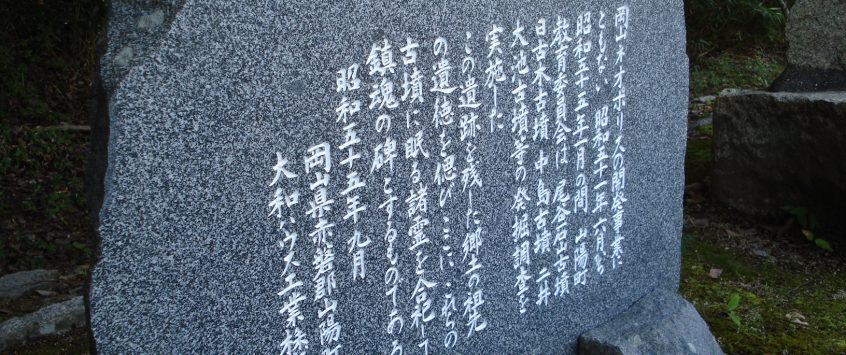 岡山ネオポリスの開発事業に
ともない、昭和五十一年六月から
昭和五十五年一月の間、山陽町
教育委員会は、尾谷岩山古墳
日古木古墳、中島古墳、二井
大池古墳等の発掘調査を
実施した
この遺跡を残した郷土の祖先
の遺徳を偲び、ここに、これらの
古墳に眠る諸霊を合祀して
鎮魂の碑とするものである
昭和五十五年九月
岡山県赤磐郡山陽町
大和ハウス工業株